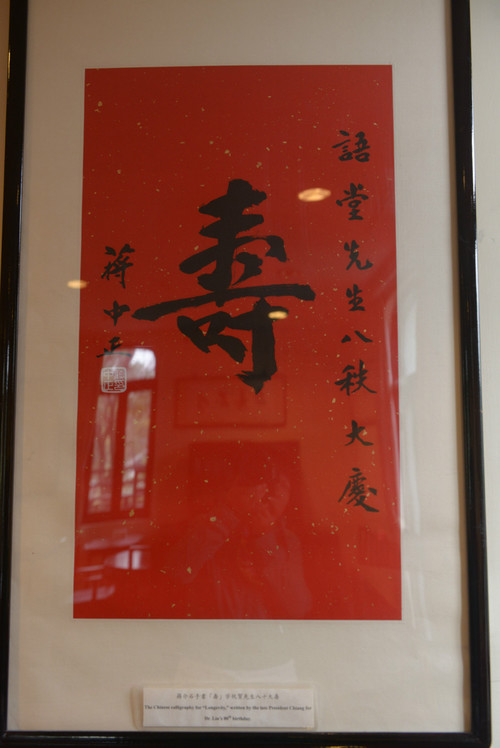 語堂先生八秩大慶
壽
蔣中正
蔣公手書「壽」字祝賀先生八十大壽
The Chinese calligraphy for "Longevity," written by the late President Chiang for
Dr. Lin's 80th birthday.